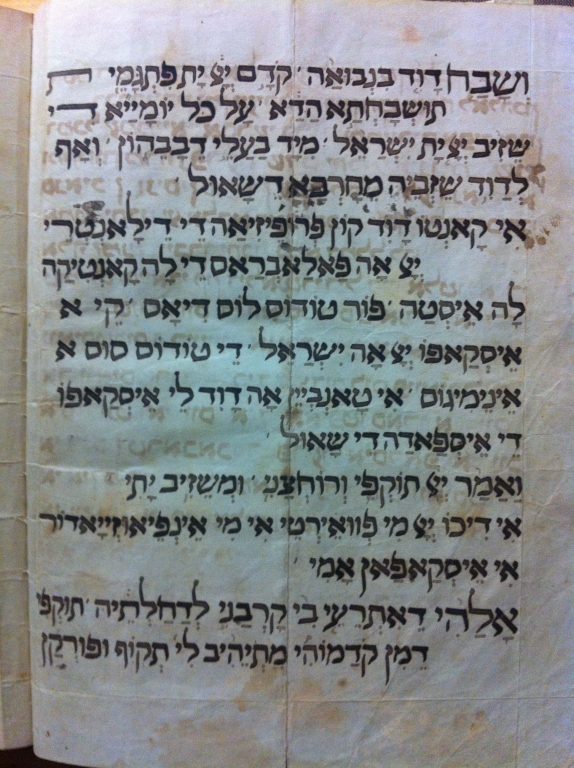 ושבח דָוִד בִנְבוּאָה קֳדָם יְיָ יָת פִתְגָמֵי
תוּשְבַּחְתָא הָדָא עַל כָל יוֹמַיָיא דִי
שֵזִיב יְיָ יָת יִשְרָאֵל מִיַד בַעֲלֵי דְבָבֵהוֹן וְאַף
לְדָוִד שֵזְבֵיהּ מֵחַרְבָּא דְשָאוּל
אִי קָאנְטוֹ דָוִד קוֹן פְרוֹפֵיזִיאָה דֵי דֵילָאנְטְרֵי
יְיָ אָה פָּאלָאבְרָאס דֵי לָה קָאנְטִיקָה
לָה אֵיסְטָה פּוֹר טוֹדוֹס לוֹס דִיאָס קֵי א
אֵיסְקָאפּוֹ יְיָ אָה יִשְרָאֵל דֵי טוֹדוֹס סוּס א
אֵינֵימִיגוֹס אִי טָאנְבְיֵין אָה דָוִד לֵי אֵיסְקָאפּוֹ
דֵי אֵיסְפָּאדָה דֵי שָאוּל
וַאֲמַר יְיָ תּוֹקְפִי וְרוֹחְצָנִי וּמְשֵזִיב יָתִי
אִי דִיכוֹ יְיָ מִי פְוֵאירְטֵי אִי מִי אֵינְפִיאוּזְייָאדוֹר
אִי אֵיסְקָאפָּאן אַמִי
אֱלָהִי דְאִתְרְעֵי בִי קָרְבַנִי לְדַחַלְתֵיהּ תּוֹקְפִי
דְמִן קֳדָמוֹהִי מִתְיְהִיב לִי תְקוֹף וּפוּרְקַן